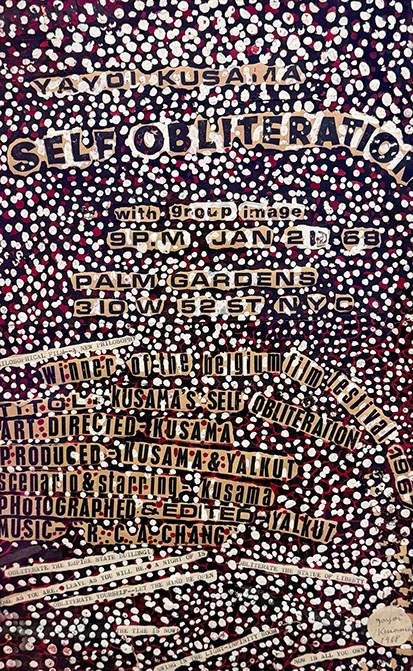 YAYOI KUSAMA
SELF OBLITERATION
with group image
9PM JAN 2 68
PALM GARDENS
310 W 52 ST N.Y.C
A NEW PHILOSOPHY
winner of the belgium film festival 196
TITOL: KUSAMA'S SELF OBLITERATION
ART DIRECTED: KUSAMA
PRODUCED KUSAMA & YALKUT
scenario & starring kusama
PHOTOGRAPHED & EDITED YALKUT
MUSIC R. C. A CHANG
OBLITERATE THE EMPIRE STATE BUILDING
OBLITERATE THE STATUE OF LIBERTY
AS YOU ARE. LEAVE AS YOU WILL BE. A NIGHT OF IS
OBLITERATE YOURSELF LET THE MIND BE OPEN
THE TIME IS NOW
NOW IS ALL YOU OWN
IS THE LIGHT INFINITY ROOM
Yayoi
Kusama